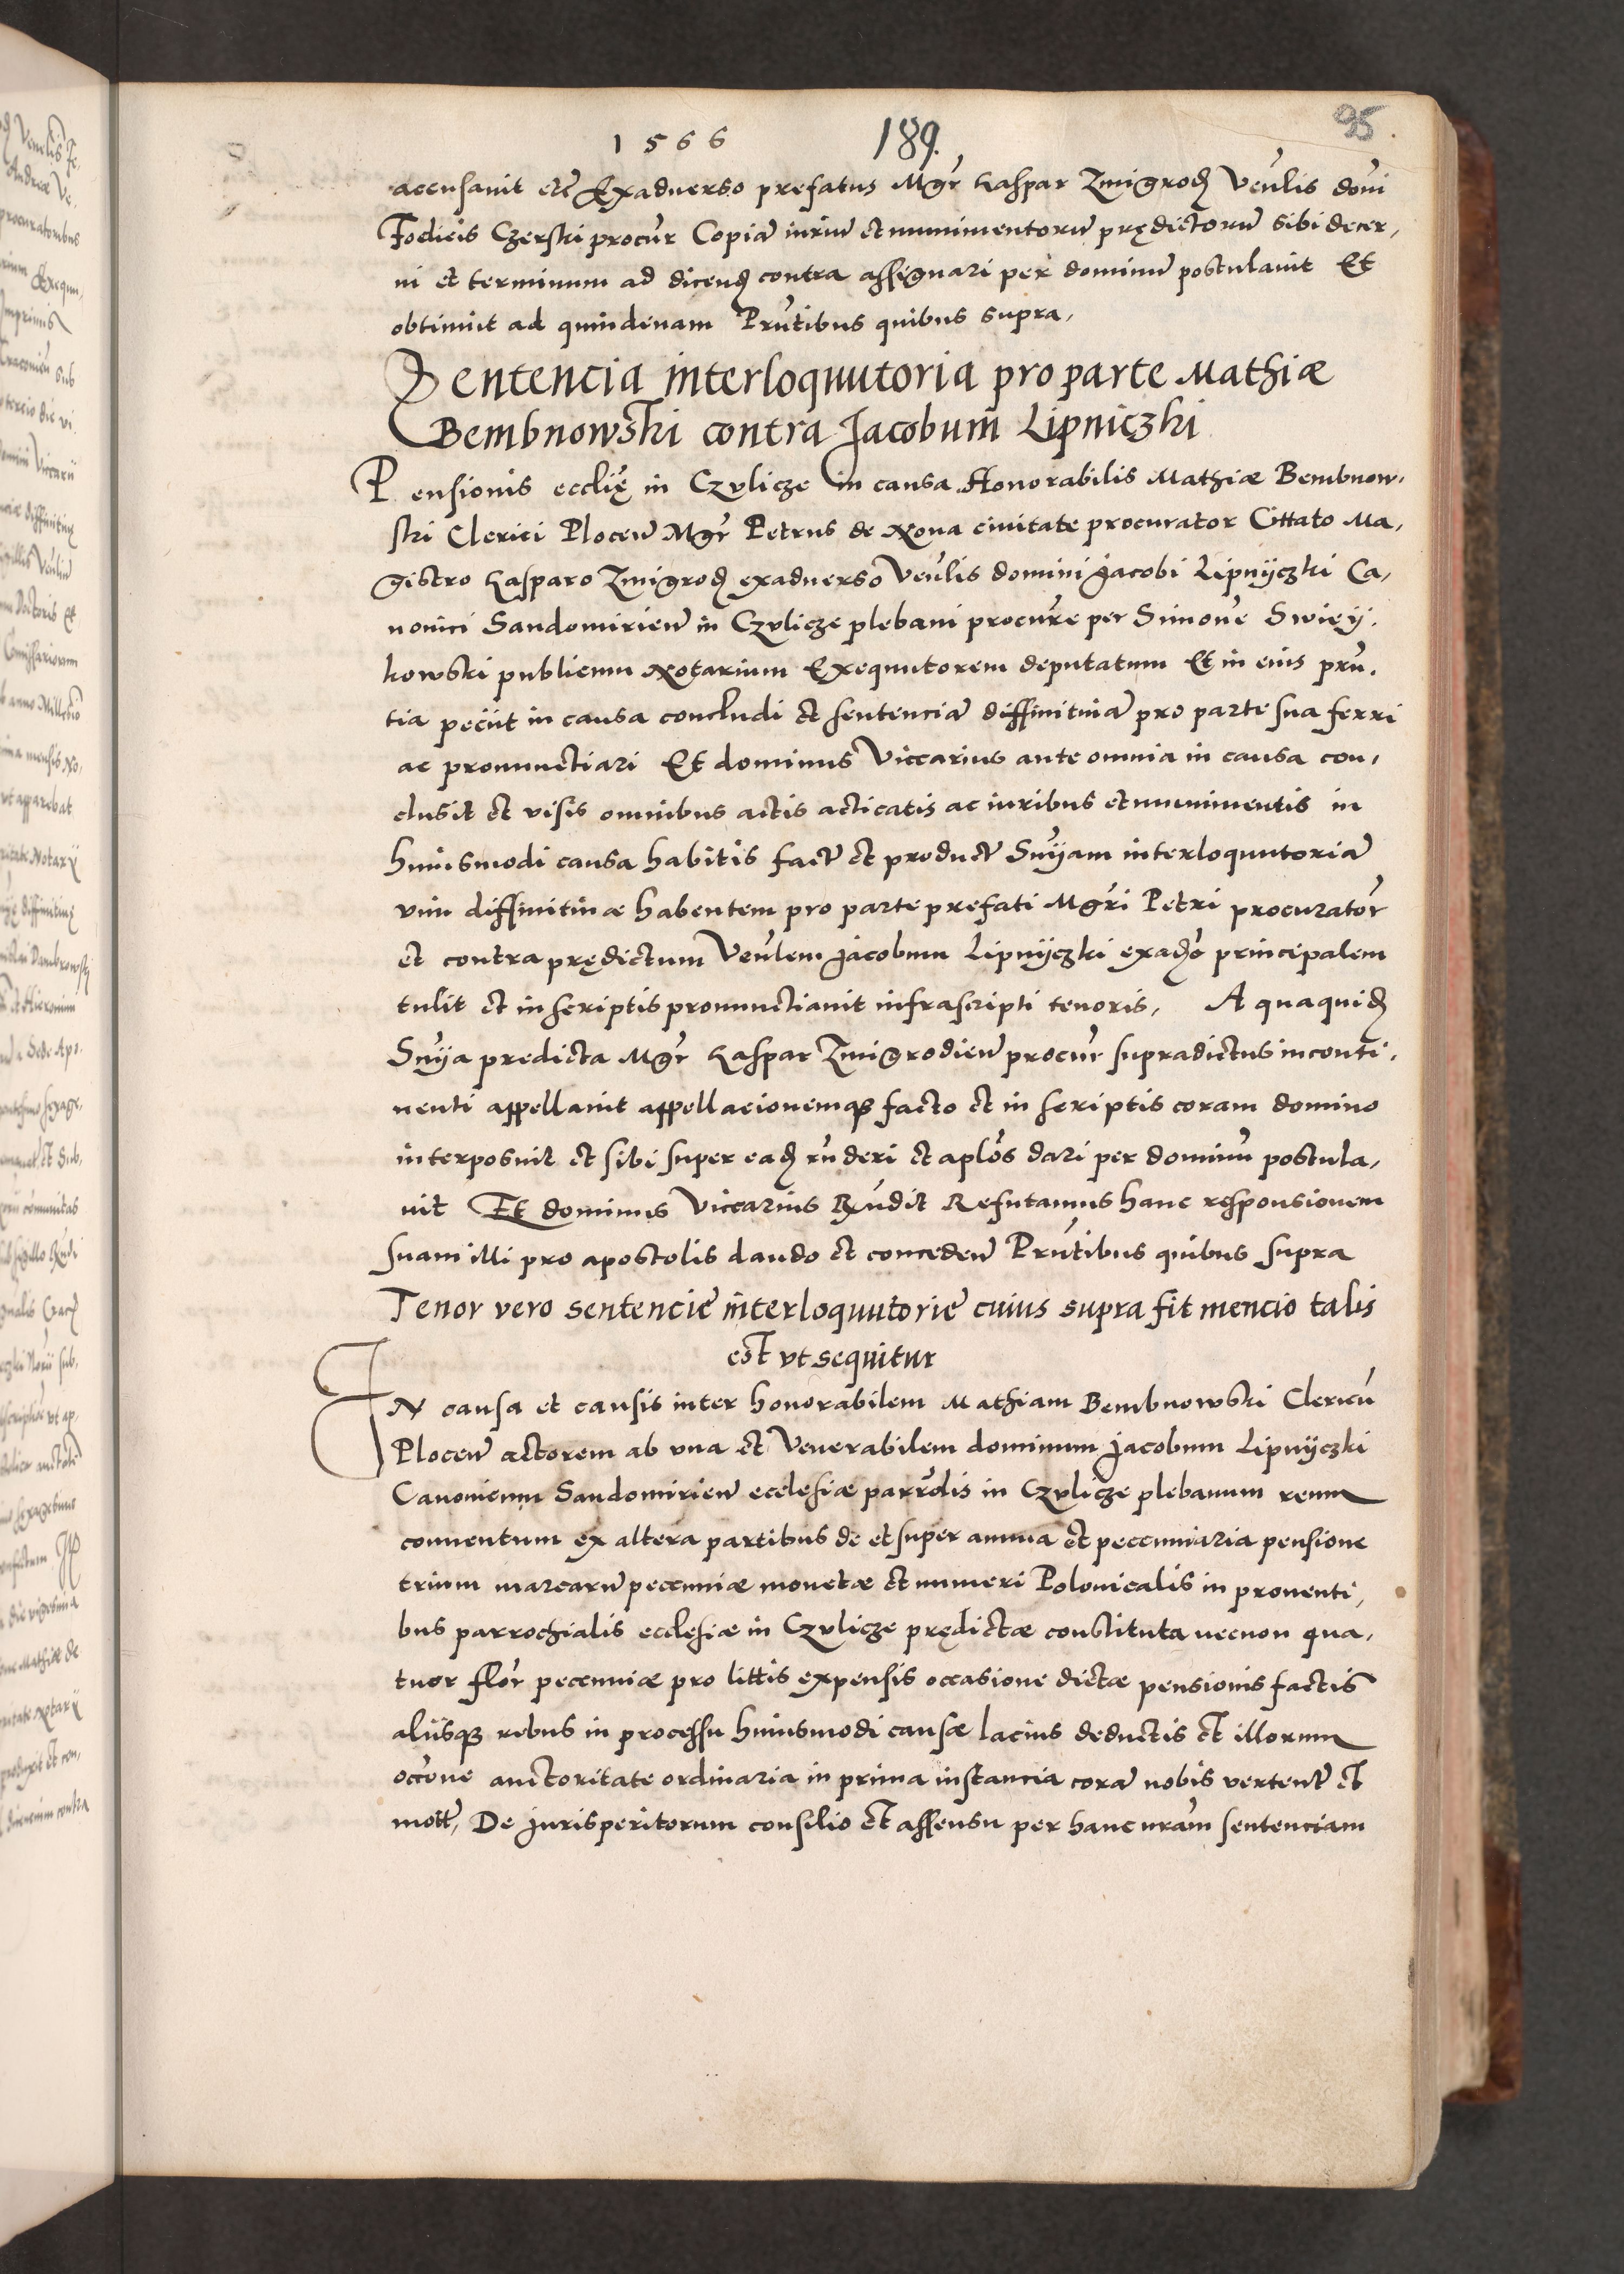 1566 189. 95
accusavit etc̄ Exadverso prefatus Mgr̄ Kaspar Zmigrod̄ Venlis̄ dom̄i
Fodicis Czerski procur̄ Copiā iuriū et munimentorū prędictorū sibi decer,
ni et terminum ad dicend̄ contra assignari per dominū postulavit Et
obtinuit ad quindenam Prn̄tibus quibus supra,
Sentencia interloquutoria pro parte Mathiæ
Bembnowski contra Jacobum Lipniczki
Pensionis eccl̄ię in Czvlicze in causa Honorabilis Mathiæ Bembnow,
ski Clerici Plocen̄ Mgr̄ Petrus de Nova civitate procurator Cittato Ma,
gistro Kasparo Zmigrod̄ exadverso Venl̄is domini Jacobi Lipnijczki Ca,
nonici Sandomirien̄ in Czvlicze plebani procur̄e per Simonē Swięy,
kowski publicum Notarium Exequutorem deputatum Et in eius prn̄,
tia peciit in causa concludi et sentenciā diffinitivā pro parte sua ferri
ac pronunctiari Et dominus Viccarius ante omnia in causa con,
clusit et visis omnibus actis acticatis ac iuribus et munimentis in
huiusmodi causa habitis fact̄ et product̄ Sn̄ijam interloquutoriā
vim diffinitivæ habentem pro parte prefati Mgr̄i Petri procurator̄
et contra prędictum Venl̄em Jacobum Lipnijczki exad̄o principalem
tulit et in scriptis pronunctiavit infrascripti tenoris, A qua quid̄
Sn̄ija predicta Mgr̄ Kaspar Zmigrodien̄ procur̄ supradictus inconti,
nenti appellavit appellacionemqꝫ facto et in scriptis coram domino
interposuit et sibi super ead̄ rn̄deri et apl̄os dari per dominū postula,
vit Et dominus Viccarius Rn̄dit Refutamus hanc responsionem
suam illi pro apostolis dando et conceden̄ Prn̄tibus quibus supra
Tenor vero sentencię interloquutorię cuius supra fit mencio talis
est vt sequitur
IN causa et causis inter honorabilem Mathiam Bembnowski Clericū
Plocen̄ actorem ab vna et Venerabilem dominum Jacobum Lipnijczki
Canonicum Sandomirien̄ ecclesiæ parrōlis in Czvlicze plebanum reum
conventum ex altera partibus de et super annua et peccuniaria pensione
trium marcarū peccuniæ monetæ et numeri Polonicalis in proventi,
bus parrochialis ecclesiæ in Czvlicze prędictæ constituta necnon qua,
tuor flor̄ peccuniæ pro litt̄is expensis occasione dictæ pensionis factis
aliisqꝫ rebus in processu huiusmodi causæ lacius deductis et illorum
occ̄one auctoritate ordinaria in prima instancia corā nobis vertent̄ et
mott̄, De jurisperitorum consilio et assensu per hanc nr̄am sentenciam